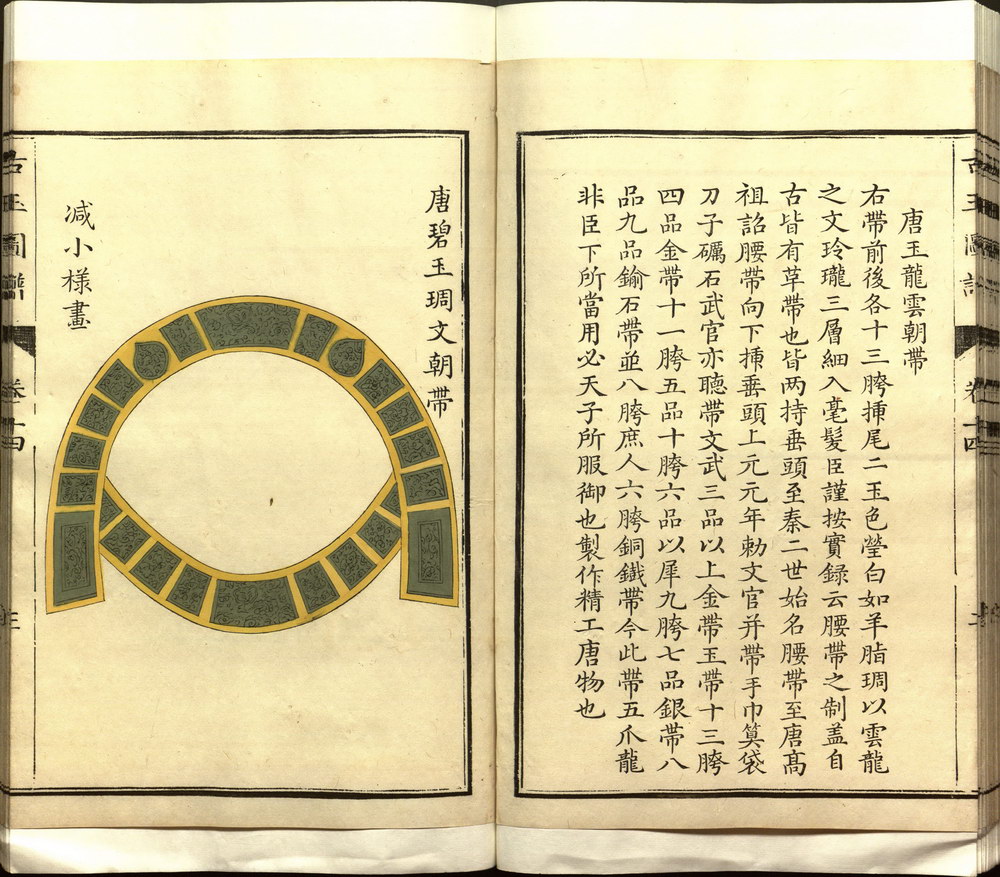 唐玉龍雲朝帶
右帶前後各十三胯揷尾二玉色瑩白如羊脂琱以雲龍
之文玲瓏三層細入毫髮臣謹按實録云腰帶之制盖自
古皆有草帶也皆两持垂頭至秦二世始名腰帶至唐髙
祖詔腰帶向下揷垂頭上元元年勅文官并帶手巾筭袋
刀子礪石武官亦聴帶文武三品以上金帶玉帶十三胯
四品金帶十一胯五品十胯六品以犀九胯七品銀帶八
品九品鍮石帶並八胯庶人六胯銅鐵帶今此帶五爪龍
非臣下所當用必天子所服御也製作精工唐物也
唐碧玉琱文朝帶
减小樣畫
古玉圖譜
卷十四